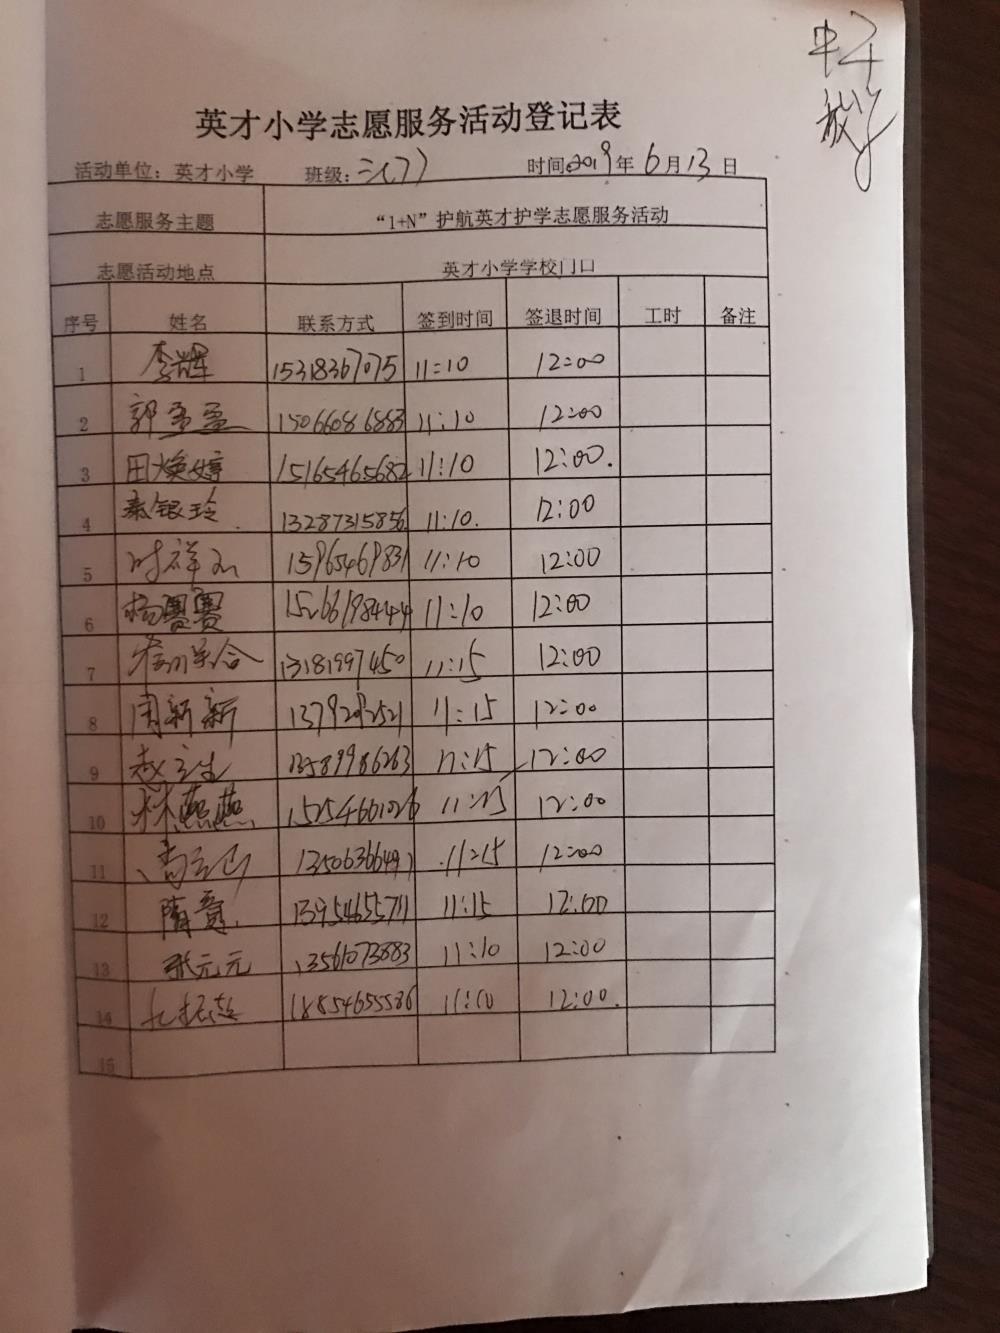 中午
放学
英才小学志愿服务活动登记表
活动单位：英才小学 班级：三(7) 时间：2019年6月13日
志愿服务主题 “1+N”护航英才护学志愿服务活动
志愿活动地点 英才小学学校门口
序号 姓名 联系方式 签到时间 签退时间 工时 备注
1 李辉 15318367075 11:10 12:00
2 郭盈盈 15066086883 11:10 12:00
3 田焕婷 15165465682 11:10 12:00.
4 秦银玲 13287315856 11:10. 12:00
5 15965469831 11:10 12:00
6 杨赛赛 15266198444 11:10 12:00
7 13181997450 11:15 12:00
8 周新新 13792092521 11:15 12:00
9 赵立生 13589986263 11:15 12:00
10 林燕燕 15254661026 11:15 12:00
11 13506366491 11:15 12:00
12 隋 13954655711 11:15 12:00
13 张元元 13561073883 11:10 12:00
14 18854655586 11:10 12:00.
15